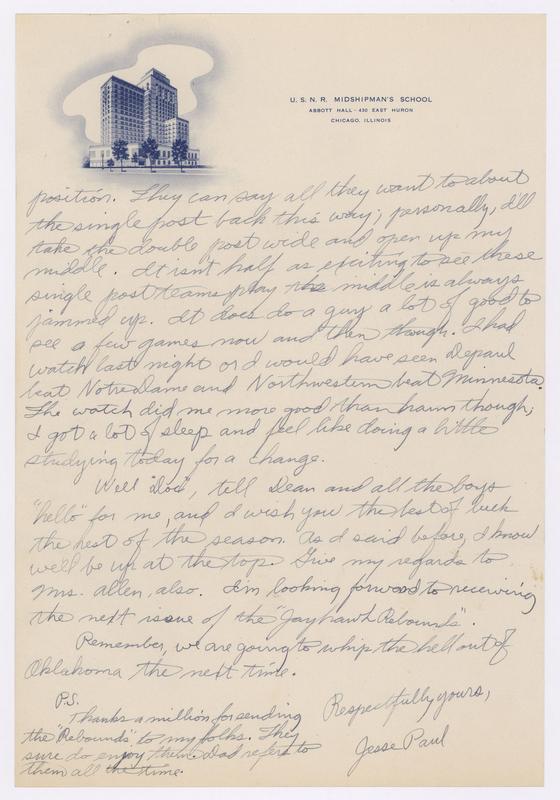 U. S. N. R. MIDSHIPMAN'S SCHOOL
ABBOTT HALL - 430 EAST HURON
CHICAGO, ILLINOIS
position. They can say all they want to about
the single post back this way; personally, I'll
take the double post wide and open up my
middle. It isn't half as exciting to see these
single post teams play the middle is always
jammed up. It does do a guy a lot of good to
see a few games now and then though. I had
watch last night or I would have seen Depaul
beat Notre Dame and Northwestern beat Minnesota.
The watch did me more good than harm though;
I got a lot of sleep and feel like doing a little
studying today for a change.
Well "Doc", tell Dean and all the boys
"hello" for me, and I wish you the best of luck
the rest of the season. As I said before, I know
we'll be up at the top. Give my regards to
Mrs. Allen, also. I'm looking forward to receiving
the next issue of the "Jayhawk Rebounds".
Remember, we are going to whip the hell out of
Oklahoma the next time.
Respectfully yours,
Jesse Paul
P.S.
Thanks a million for sending
the "Rebounds" to my folks. They
sure do enjoy them. Dad refers to
them all the time.